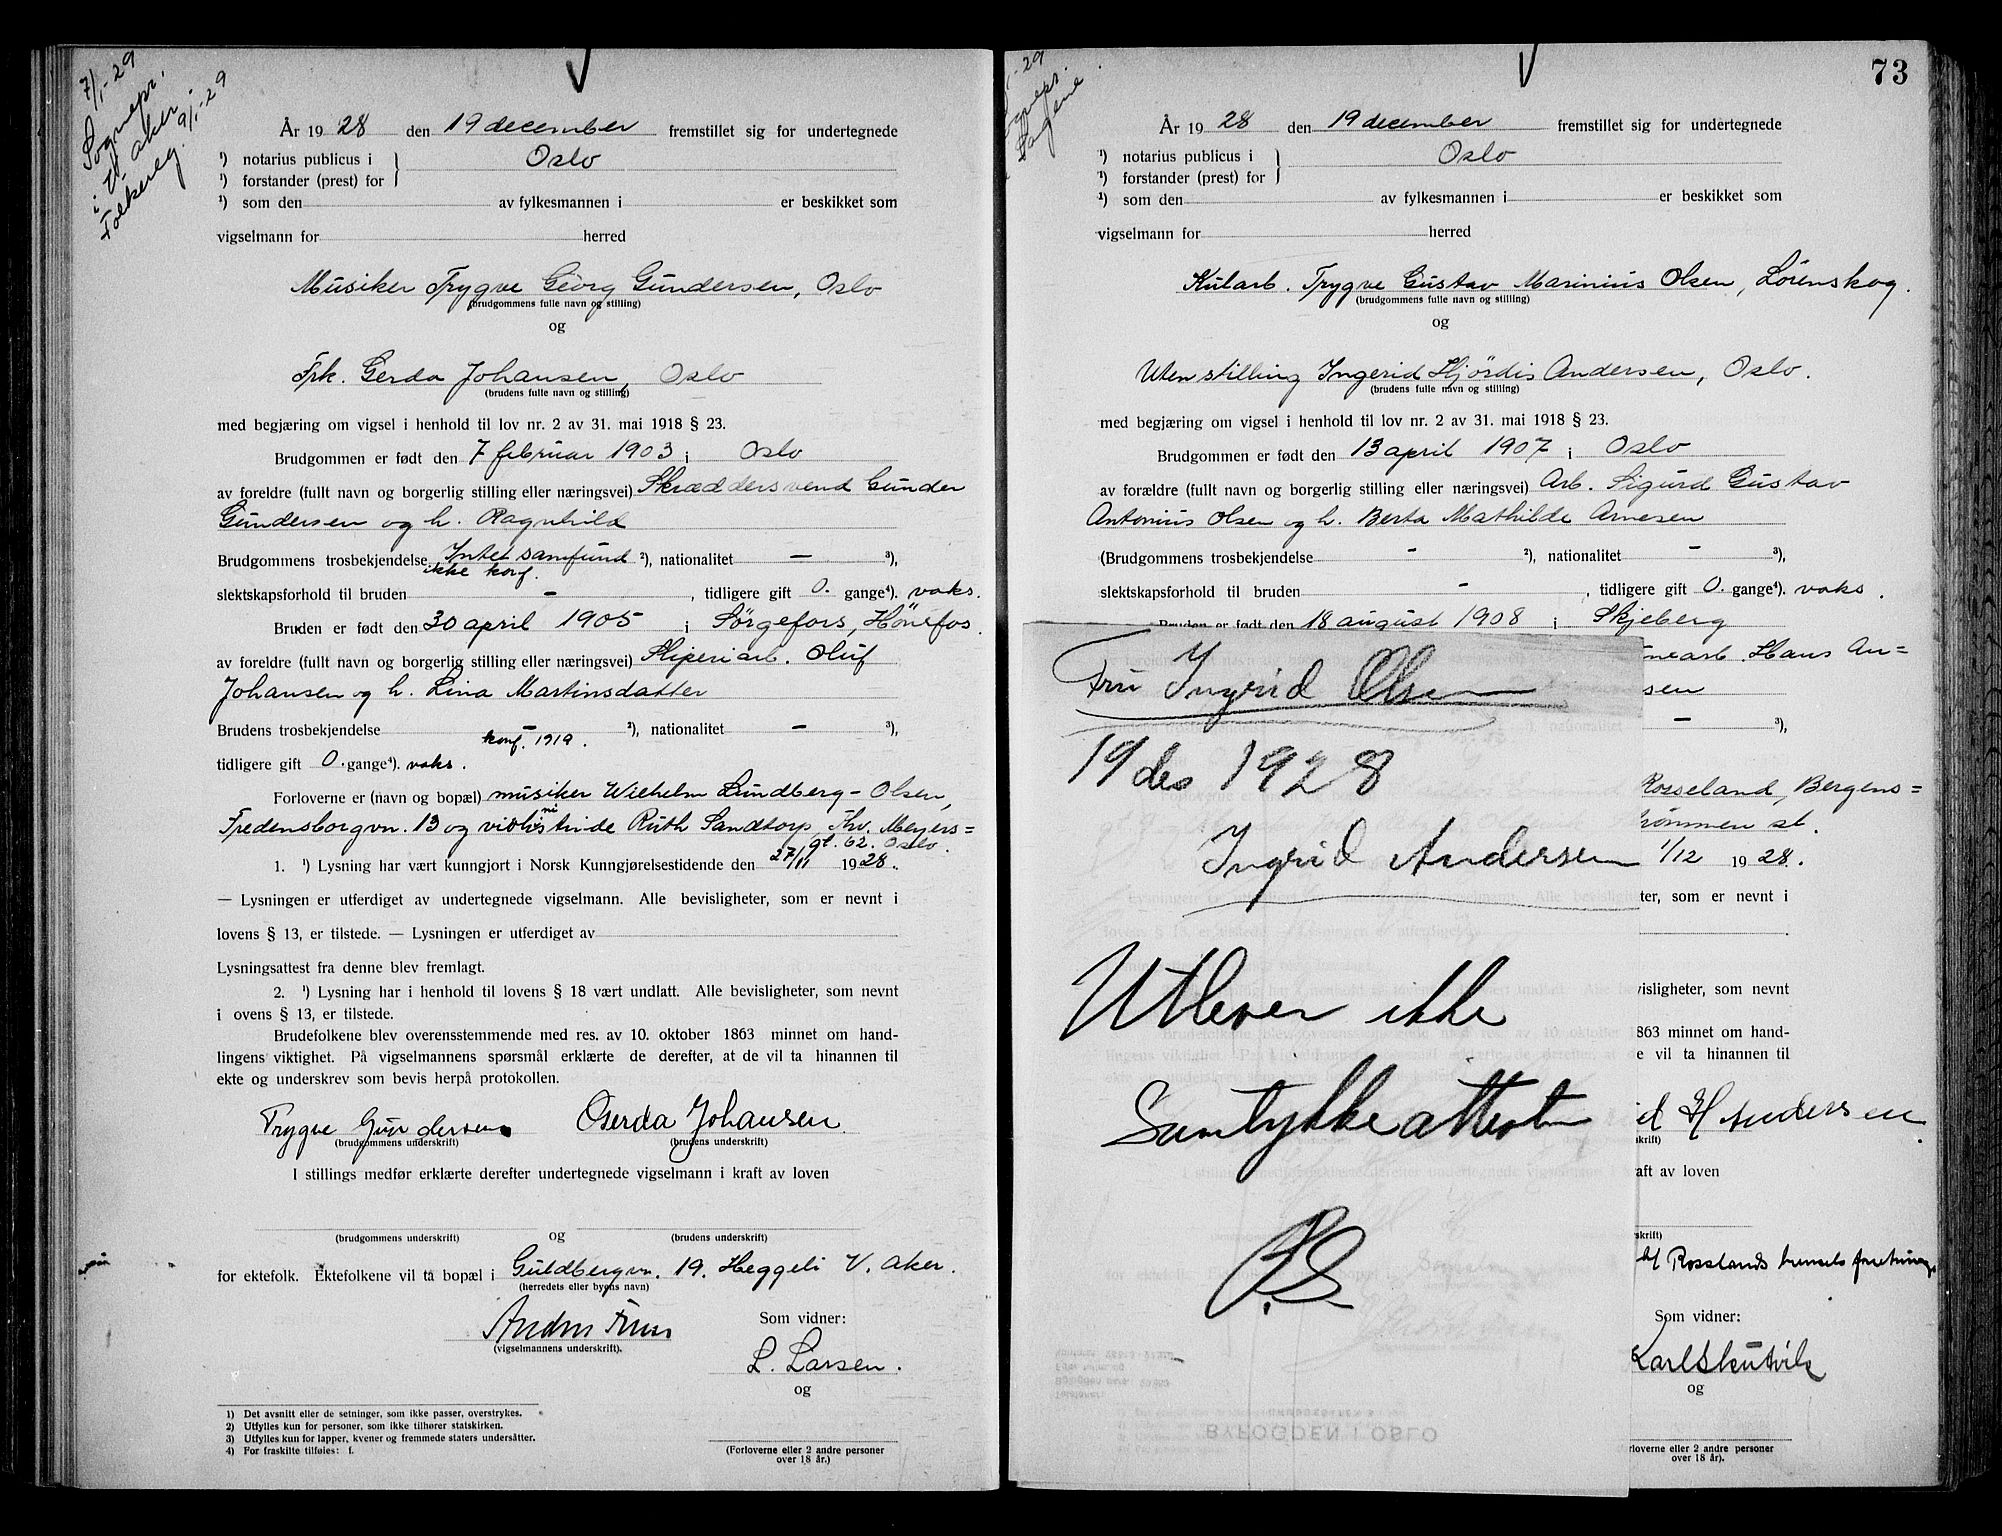 7/1-29
Sognepr.
i V. aker.
Folkereg. 9/1-29
År 1928 den 19 december fremstillet sig for undertegnede
¹) notarius publicus i } Oslo
¹) forstander (prest) for
¹) som den av fylkesmannen i er beskikket som
vigselmann for herred
Musiker Trygve Georg Gundersen, Oslo
(brudgommens fulle navn og stilling)
og
Frk. Gerda Johansen, Oslo
(brudens fulle navn og stilling)
med begjæring om vigsel i henhold til lov nr. 2 av 31. mai 1918 § 23.
Brudgommen er født den 7 februar 1903 i Oslo
av foreldre (fullt navn og borgerlig stilling eller næringsvei) Skræddersvend Gunder
Gundersen og h. Ragnhild
Brudgommens trosbekjendelse Intet samfund ²), nationalitet — ³),
ikke konf.
slektskapsforhold til bruden - , tidligere gift 0. gange⁴). vaks.
Bruden er født den 30 april 1905 i Sørgefors, Hønefos.
av foreldre (fullt navn og borgerlig stilling eller næringsvei) Sliperiarb. Oluf
Johansen og h. Lina Martinsdatter
Brudens trosbekjendelse - ²), nationalitet — ³),
konf. 1919.
tidligere gift 0. gange⁴). vaks.
Forloverne er (navn og bopæl) musiker Wilhelm Lundberg-Olsen,
Fredensborgvn. 13 og Ruth Sandtorp, Thv. Meyers=
gt. 62. Oslo.
1. ¹) Lysning har vært kunngjort i Norsk Kunngjørelsestidende den 27/11 1928.
— Lysningen er utferdiget av undertegnede vigselmann. Alle bevisligheter, som er nevnt i
lovens § 13, er tilstede. — Lysningen er utferdiget av
Lysningsattest fra denne blev fremlagt.
2. ¹) Lysning har i henhold til lovens § 18 vært undlatt. Alle bevisligheter, som nevnt
i ovens § 13, er tilstede.
Brudefolkene blev overensstemmende med res. av 10. oktober 1863 minnet om hand-
lingens viktighet. På vigselmannens spørsmål erklærte de derefter, at de vil ta hinannen til
ekte og underskrev som bevis herpå protokollen.
Trygve Gundersen Gerda Johansen
(brudgommens underskrift) (brudens underskrift)
I stillings medfør erklærte derefter undertegnede vigselmann i kraft av loven
og
(brudgommens underskrift) (brudens underskrift)
for ektefolk. Ektefolkene vil ta bopæl i Guldbergvn. 19. Heggeli V. Aker.
(herredets eller byens navn)
(vigselmannens underskrift).
Som vidner:
L. Larsen.
og
1) Det avsnitt eller de setninger, som ikke passer, overstrykes.
2) Utfylles kun for personer, som ikke tilhører statskirken.
3) Utfylles kun for lapper, kvener og fremmede staters undersåtter.
4) For fraskilte tilføies: f.
(Forloverne eller 2 andre personer
over 18 år.)
73
/1-29
ognepr.
Sagene
År 1928 den 19 december fremstillet sig for undertegnede
¹) notarius publicus i } Oslo
¹) forstander (prest) for
¹) som den av fylkesmannen i er beskikket som
vigselmann for herred
Kularb. Trygve Gustav Marinius Olsen, Lørenskog.
(brudgommens fulle navn og stilling)
og
Uten stilling Ingerid Hjördis Andersen, Oslo.
(brudens fulle navn og stilling)
med begjæring om vigsel i henhold til lov nr. 2 av 31. mai 1918 § 23.
Brudgommen er født den 13 april 1907 i Oslo
av forældre (fullt navn og borgerlig stilling eller næringsvei) Arb. Sigurd Gustav
Antonius Olsen og h. Berta Mathilde Arnesen
(Brudgommens trosbekjendelse - ²), nationalitet - ³),
slektskapsforhold til bruden - , tidligere gift 0. gange⁴). vaks.
Bruden er født den 18 august 1908 i Skjeberg
nearb. Hans An=
sen
— ³),
Rosseland, Bergens=
trømmen st.
1/12 1928.
ter, som er nevnt i
visligheter, som nevnt
863 minnet om hand-
e vil ta hinannen til
id H Andersen
skrift)
aft av loven
skrift)
Som vidner:
Karl Skutvik
og
rloverne eller 2 andre personer
over 18 år).
Fru Ingrid Olsen
19 des 1928
Ingrid Andersen
Utlever ikke
Samtykkeattesten
BYFOGDEN I OSLO